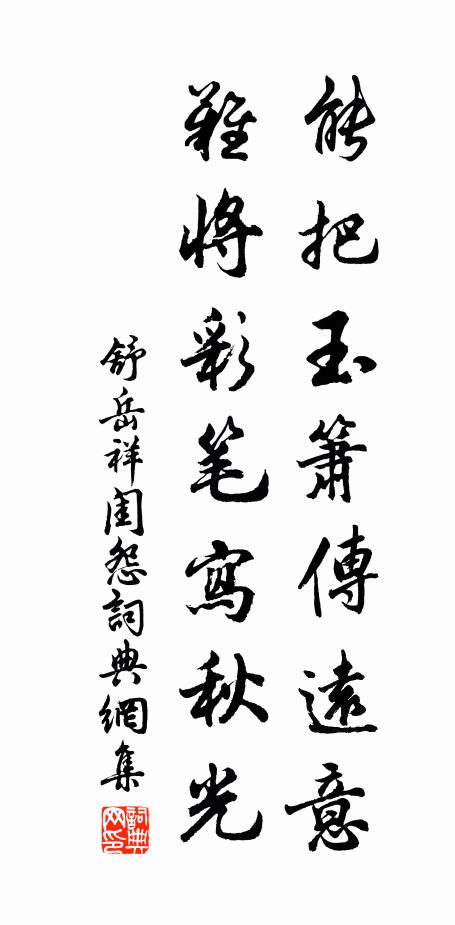 能把玉簫傳遠意
難將彩笔寫秋光
舒岳祥閨怨詞典網集
詞典网印